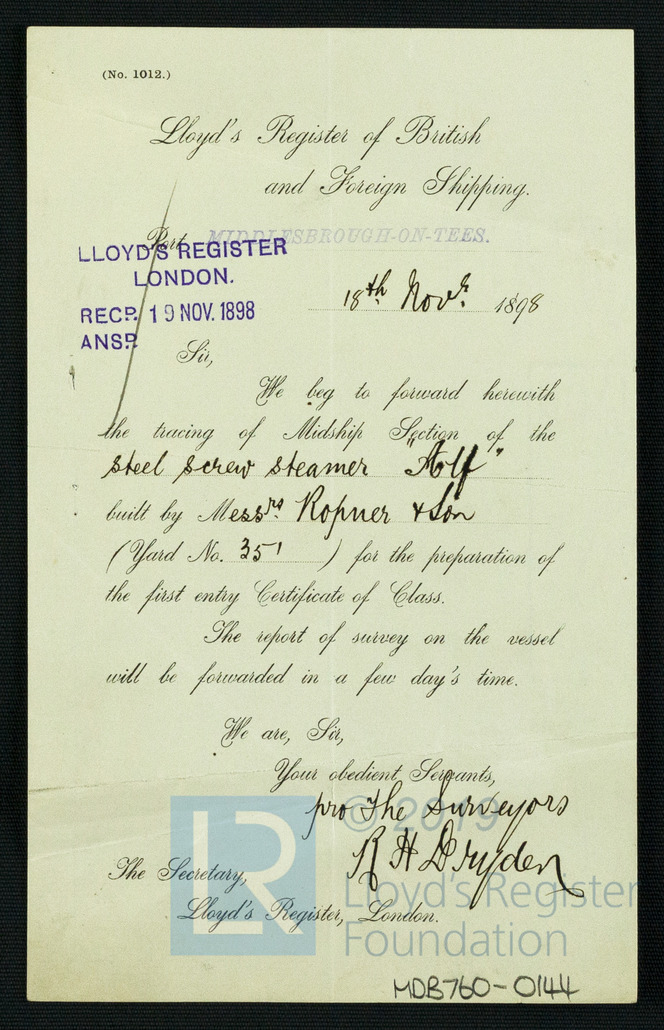 (No. 1012.)
Lloyd's Register of British
and Foreign Shipping.
Port MIDDLESBROUGH-ON-TEES.
LLOYD'S REGISTER
LONDON.
RECD. 19 NOV. 1898
ANSD.
18th Novr. 1898
Sir,
We beg to forward herewith
the tracing of Midship Section of the
steel screw steamer "Alf"
built by Messrs. Ropner & Son
(Yard No. 351 ) for the preparation of
the first entry Certificate of Class.
The report of survey on the vessel
will be forwarded in a few day's time.
We are, Sir,
Your obedient Servants,
pro The Surveyors
R H Dryden
The Secretary,
Lloyd's Register, London.
LR
© 2019
Lloyd's Register
Foundation
MDB760-0144